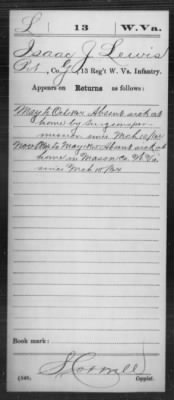 L 13 W.Va.
Isaac J Lewis
Pvt, Co. G, 13 Reg't W. Va. Infantry.
Appears on Returns as follows:
May to Oct 64 Absent sick at
home by Surgeons per-
mission since Mch 10/64
Nov 64 to May 65 Absent sick at
home in Mason Co. W. Va
since Mch 10/64
Book mark:
(546) Copyist.